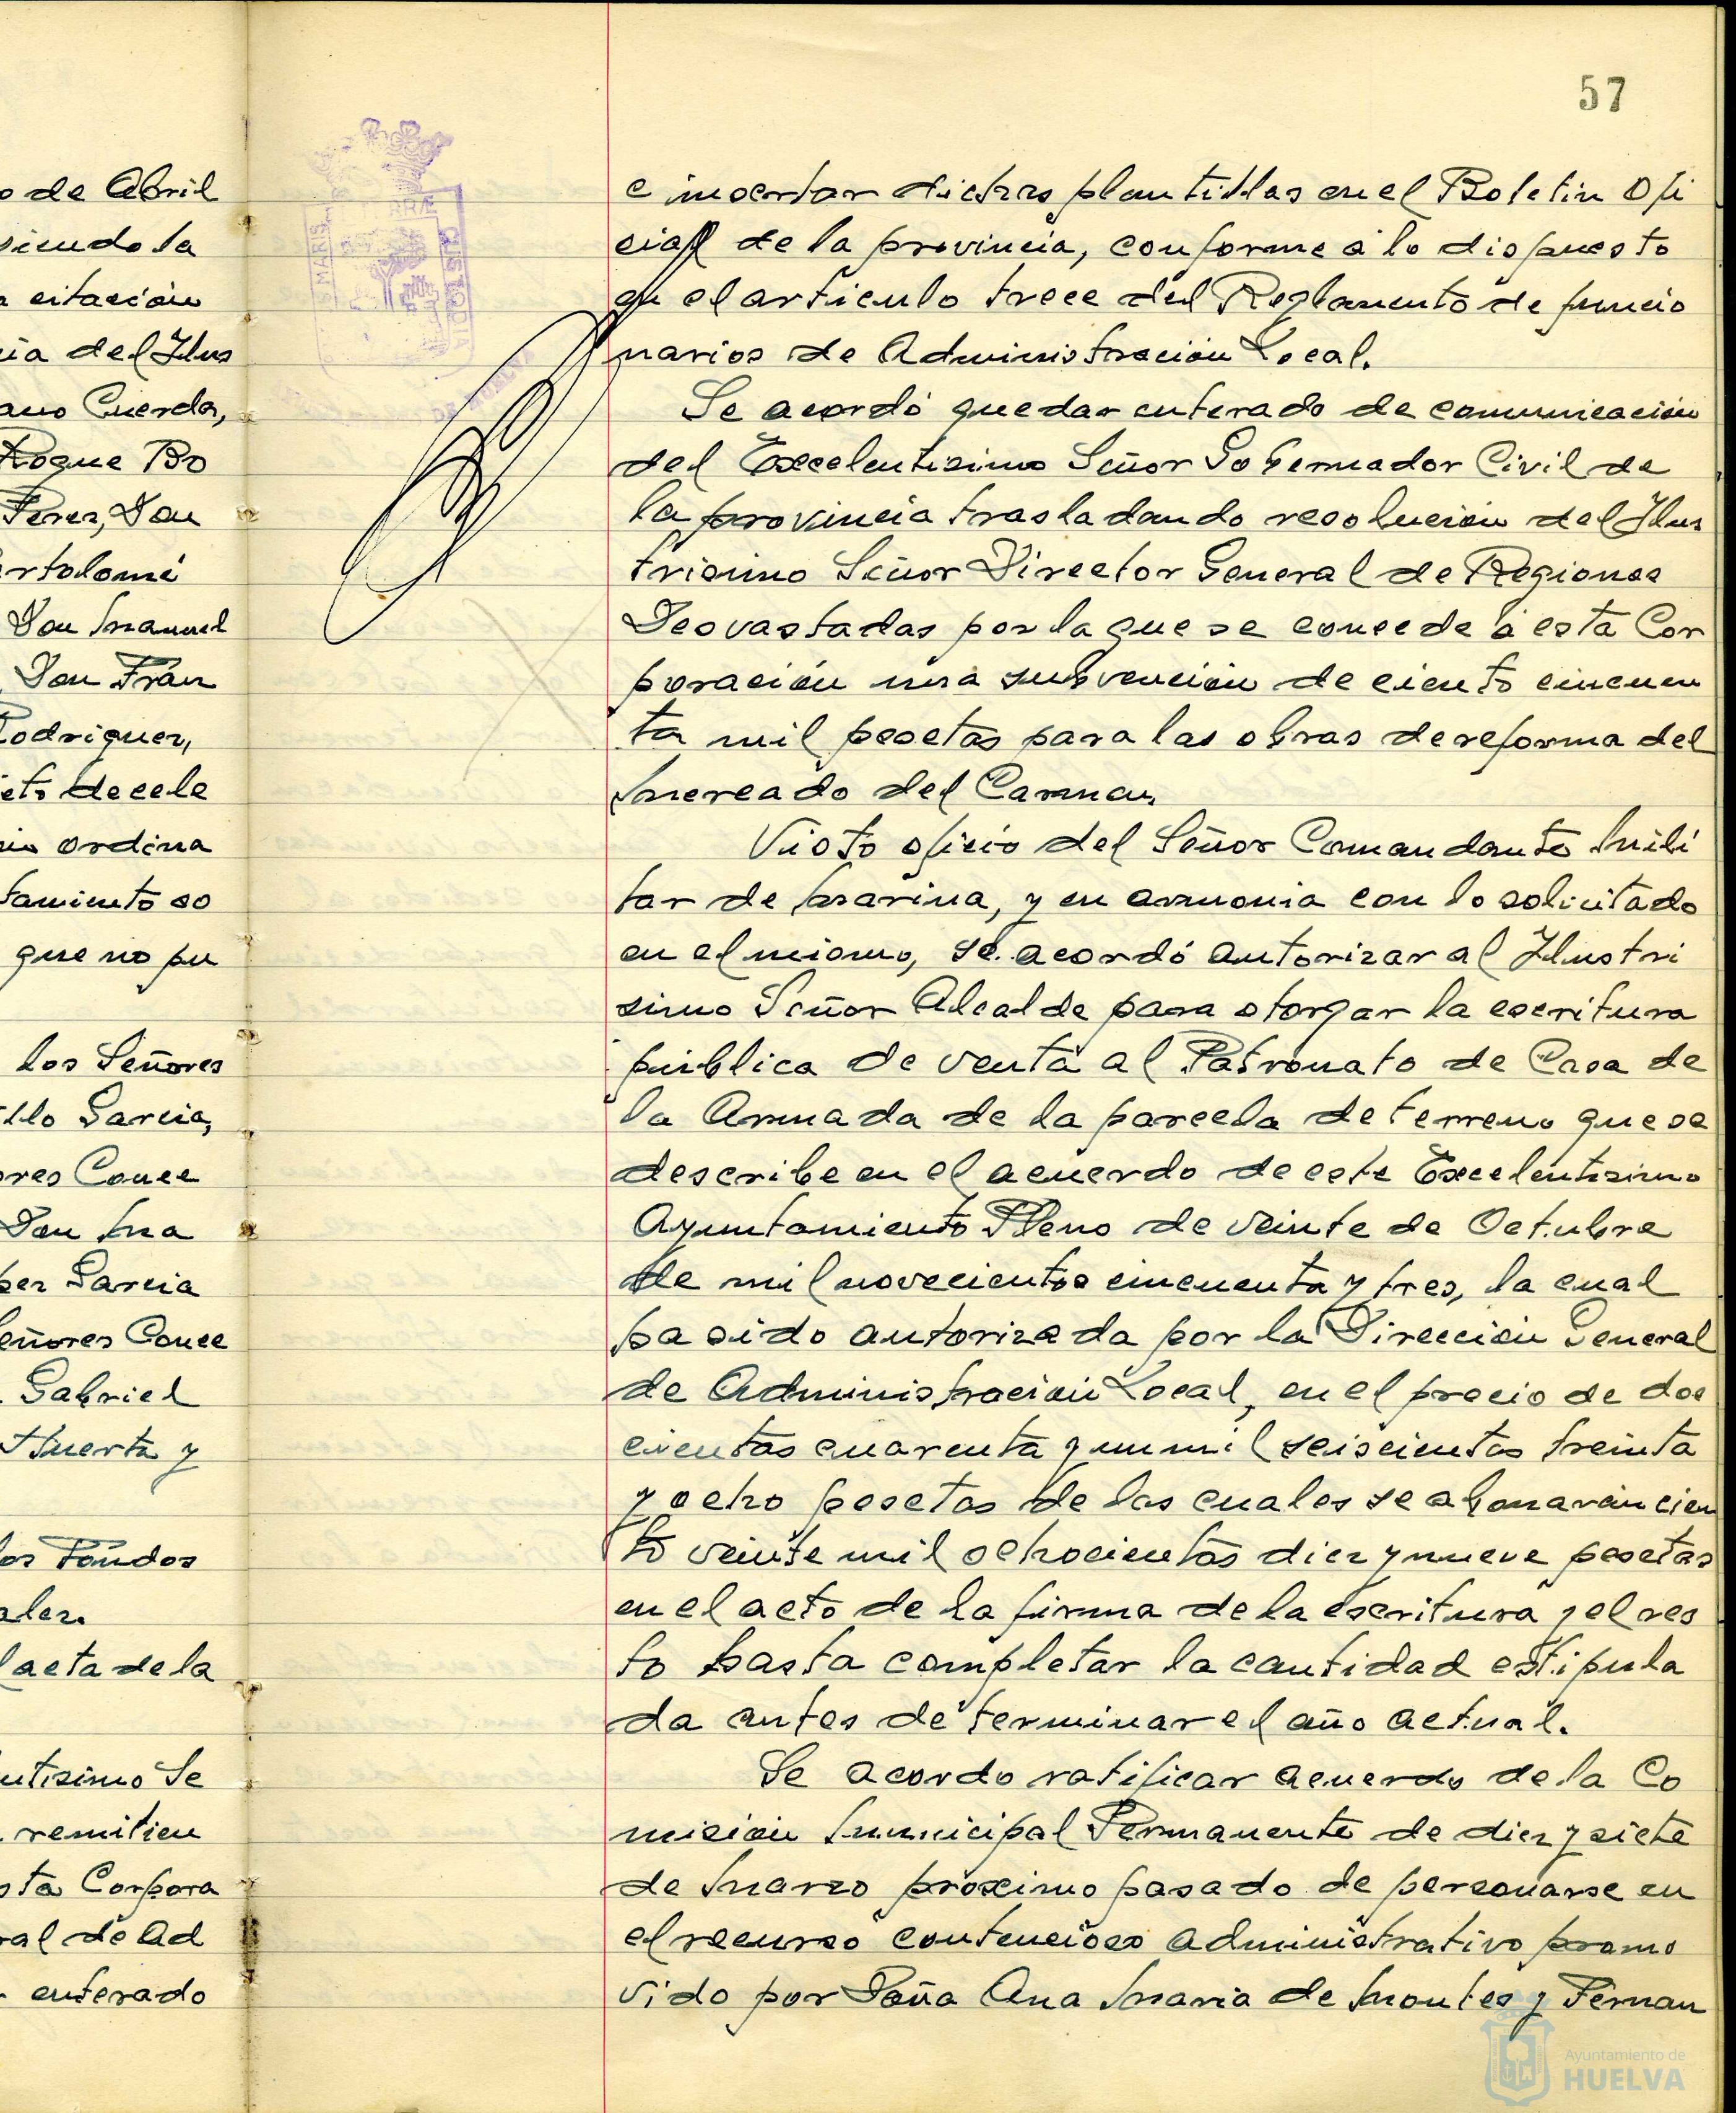 o de Abril
siendo la
a citación
ia del Ilus
ano Cuerda,
Roque Bo
Perez, Don
artolomé
Don Manuel
Don Fran
Rodriguez,
eto de cele
ordina
tamiento so
que no pu
los Señores
illo Garcia,
ores Conce
Don Ma
ber Garcia
eñores Conce
Gabriel
Huerta y
los Fondos
alez.
l acta de la
entisimo Se
remitien
sta Corpora
ral de Ad
enterado
57
e insertar dichas plantillas en el Boletin Ofi
cial de la provincia, conforme a lo dispuesto
en el articulo trece del Reglamento de funcio
narios de Administración Local.
Se acordó quedar enterado de comunicación
del Excelentisimo Señor Gobernador Civil de
la provincia trasladando resolución del Ilus
trisimo Señor Director General de Regiones
Desvastadas por la que se concede a esta Cor
poración una subvención de ciento cincuen
ta mil pesetas para las obras de reforma del
Mercado del Carmen.
Visto oficio del Señor Comandante Mili
tar de Marina, y en armonia con lo solicitado
en el mismo, se acordó autorizar al Ilustri
simo Señor Alcalde para otorgar la escritura
pública de venta al Patronato de Casa de
la Armada de la parcela de terreno que se
describe en el acuerdo de este Excelentisimo
Ayuntamiento Pleno de veinte de Octubre
de mil novecientos cincuenta y tres, la cual
ha sido autorizada por la Dirección General
de Administración Local, en el precio de dos
cientas cuarenta y un mil seiscientas treinta
y ocho pesetas de las cuales se abonarán cien
to veinte mil ochocientas diez y nueve pesetas
en el acto de la firma de la escritura y el res
to hasta completar la cantidad estipula
da antes de terminar el año actual.
Se acordo ratificar acuerdo de la Co
misión Municipal Permanente de diez y siete
de Marzo próximo pasado de personarse en
el recurso contencioso administrativo promo
vido por Doña Ana Maria de Montes y Fernan
S MARIS
CUSTODIA
Ayuntamiento de
HUELVA